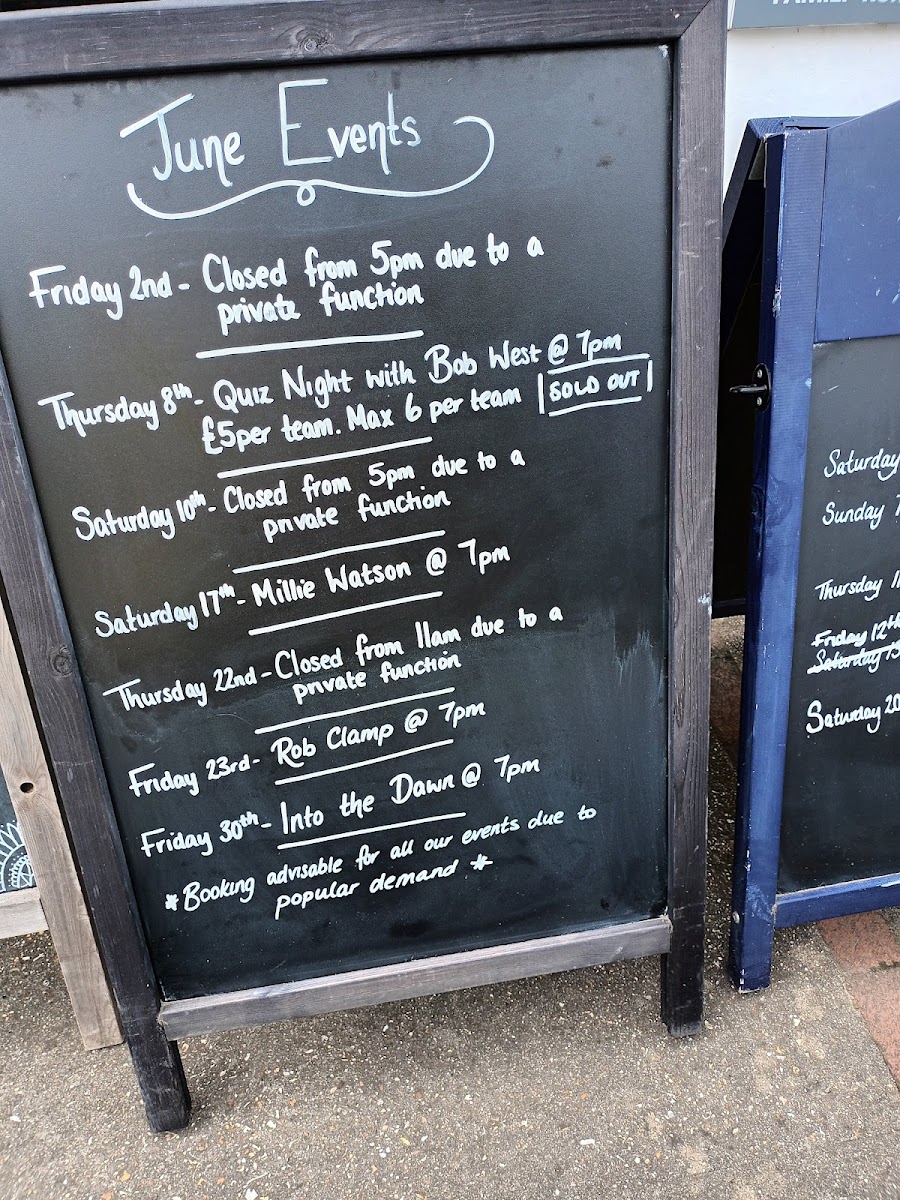 June Events
Friday 2nd - Closed from 5pm due to a
private function
Thursday 8th - Quiz Night with Bob West @ 7pm
£5per team. Max 6 per team SOLD OUT
Saturday 10th - Closed from 5pm due to a
private function
Saturday 17th - Millie Watson @ 7pm
Thursday 22nd - Closed from 11am due to a
private function
Friday 23rd - Rob Clamp @ 7pm
Friday 30th - Into the Dawn @ 7pm
*Booking advisable for all our events due to
popular demand *
Saturday
Sunday
Thursday
Friday 12th
Saturday
Saturday 20